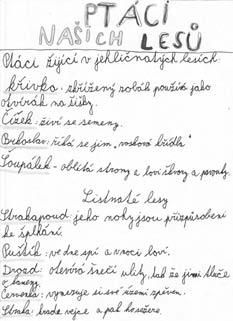 PTÁCI
NAŠICH LESŮ
Ptáci žijící v jehličnatých lesích:
křivka: zkřížený zobák používá jako
otvírák na šišky.
Čížek: živí se semeny.
Brkoslav: říká se jim, vosková křídla"
Šoupálek - oblétá stromy a loví škvory a pavouky.
Listnaté lesy
Strakapoud: jeho nohy jsou přizpůsobeni
ke šplhání.
Puštík: ve dne spí a v noci loví.
Drozd: otevírá šnečí ulity, tak že jimi tluče
o kameny.
Červenka: vymezuje si své území zpěvem.
Straka: krade vejce a pak holožere.